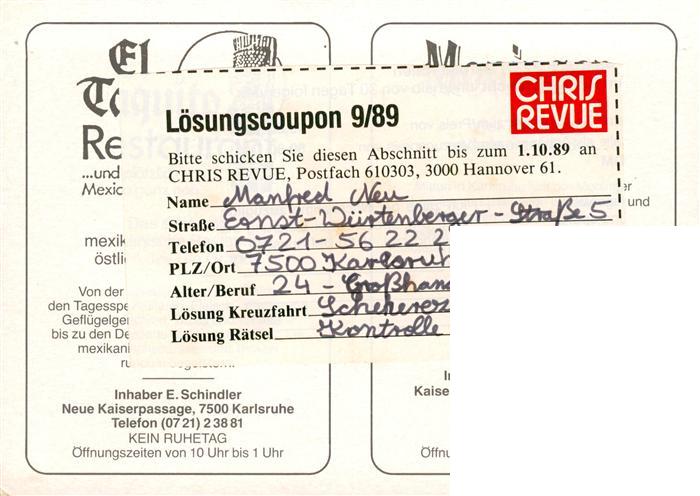 El
Mexican
Re
CHRIS
REVUE
Lösungscoupon 9/89
Bitte schicken Sie diesen Abschnitt bis zum 1.10.89 an
CHRIS REVUE, Postfach 610303, 3000 Hannover 61.
Name Manfred Neu
Straße Ernst-Würtenberger-Straße 5
Telefon 0721-56 22 2
PLZ/Ort 7500 Karlsruh
Alter/Beruf 24 - Großhan
Lösung Kreuzfahrt Scheherez
Lösung Rätsel Kontrolle
...und
Mexic
und
mexik
östli
Von der
den Tagesspe
Geflügelge
bis zu den De
mexikani
Inhaber E. Schindler
Neue Kaiserpassage, 7500 Karlsruhe
Telefon (07 21) 2 38 81
KEIN RUHETAG
Öffnungszeiten von 10 Uhr bis 1 Uhr
Kaise
Öffn